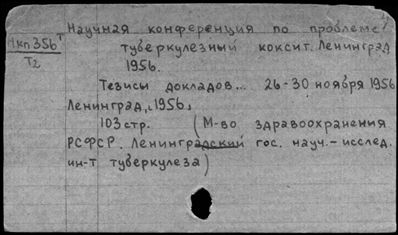 Научная конференция по проблеме
Мкп356т
Т2
туберкулезный коксит. Ленинград
1956.
Тезисы докладов... 26-30 ноября 1956
Ленинград, 1956,
103 стр. (М-во здравоохранения
РСФСР. Ленинградский гос. науч.-исслед.
ин-т туберкулеза)